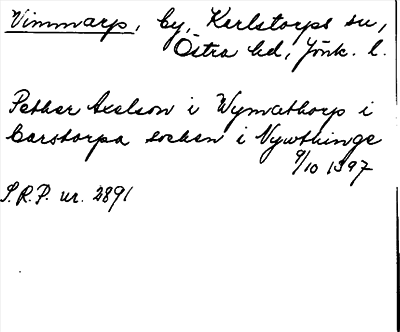 Vimmarp, by, Karlstorps sn,
Östra hd, Jönk. l.
Pether Axelson i Wymathorp i
Carstorpa sochen i Nywthinge
9/10 1397
S.R.P. nr. 2891